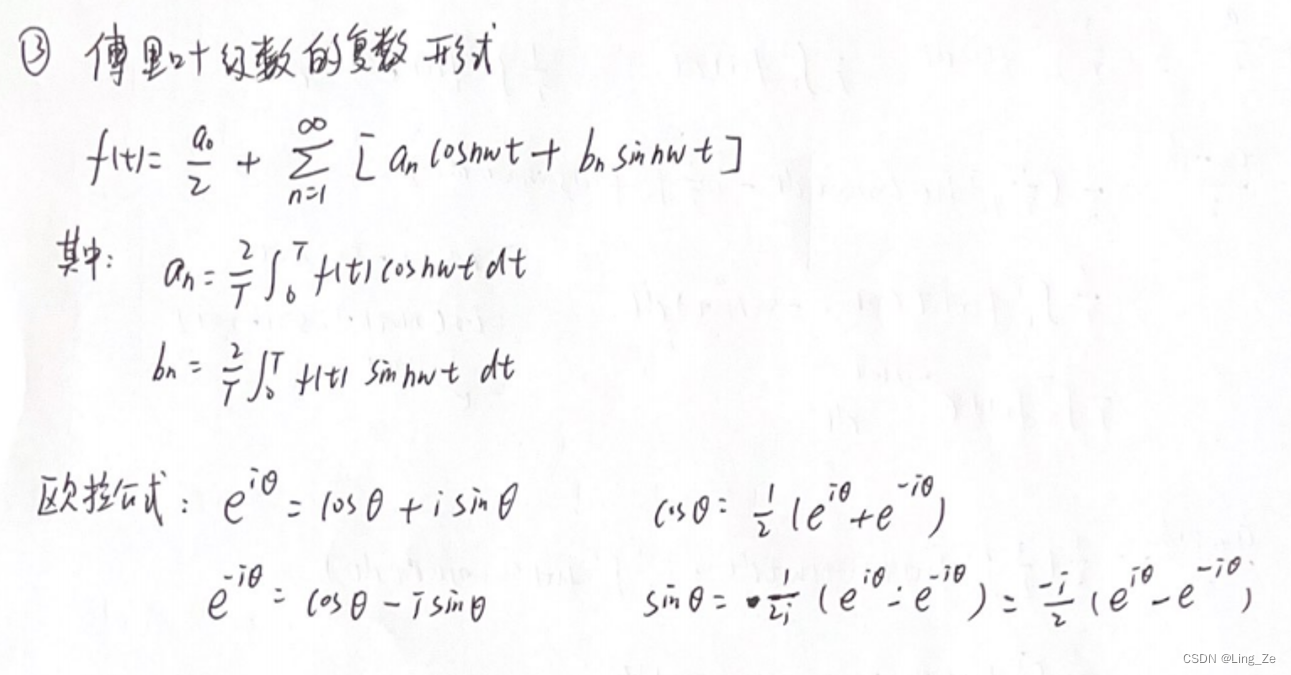 ③ 傅里叶级数的复数形式
f(t) = a₀/2 + ∑_{n=1}^{∞} [ aₙ cosnωt + bₙ sinnωt ]
其中: aₙ = 2/T ∫₀ᵀ f(t) cosnωt dt
bₙ = 2/T ∫₀ᵀ f(t) sinnωt dt
欧拉公式: e^{iθ} = cosθ + i sinθ    cosθ = 1/2 (e^{iθ} + e^{-iθ})
e^{-iθ} = cosθ - i sinθ    sinθ = 1/2i (e^{iθ} - e^{-iθ}) = -i/2 (e^{iθ} - e^{-iθ})
CSDN @Ling_Ze